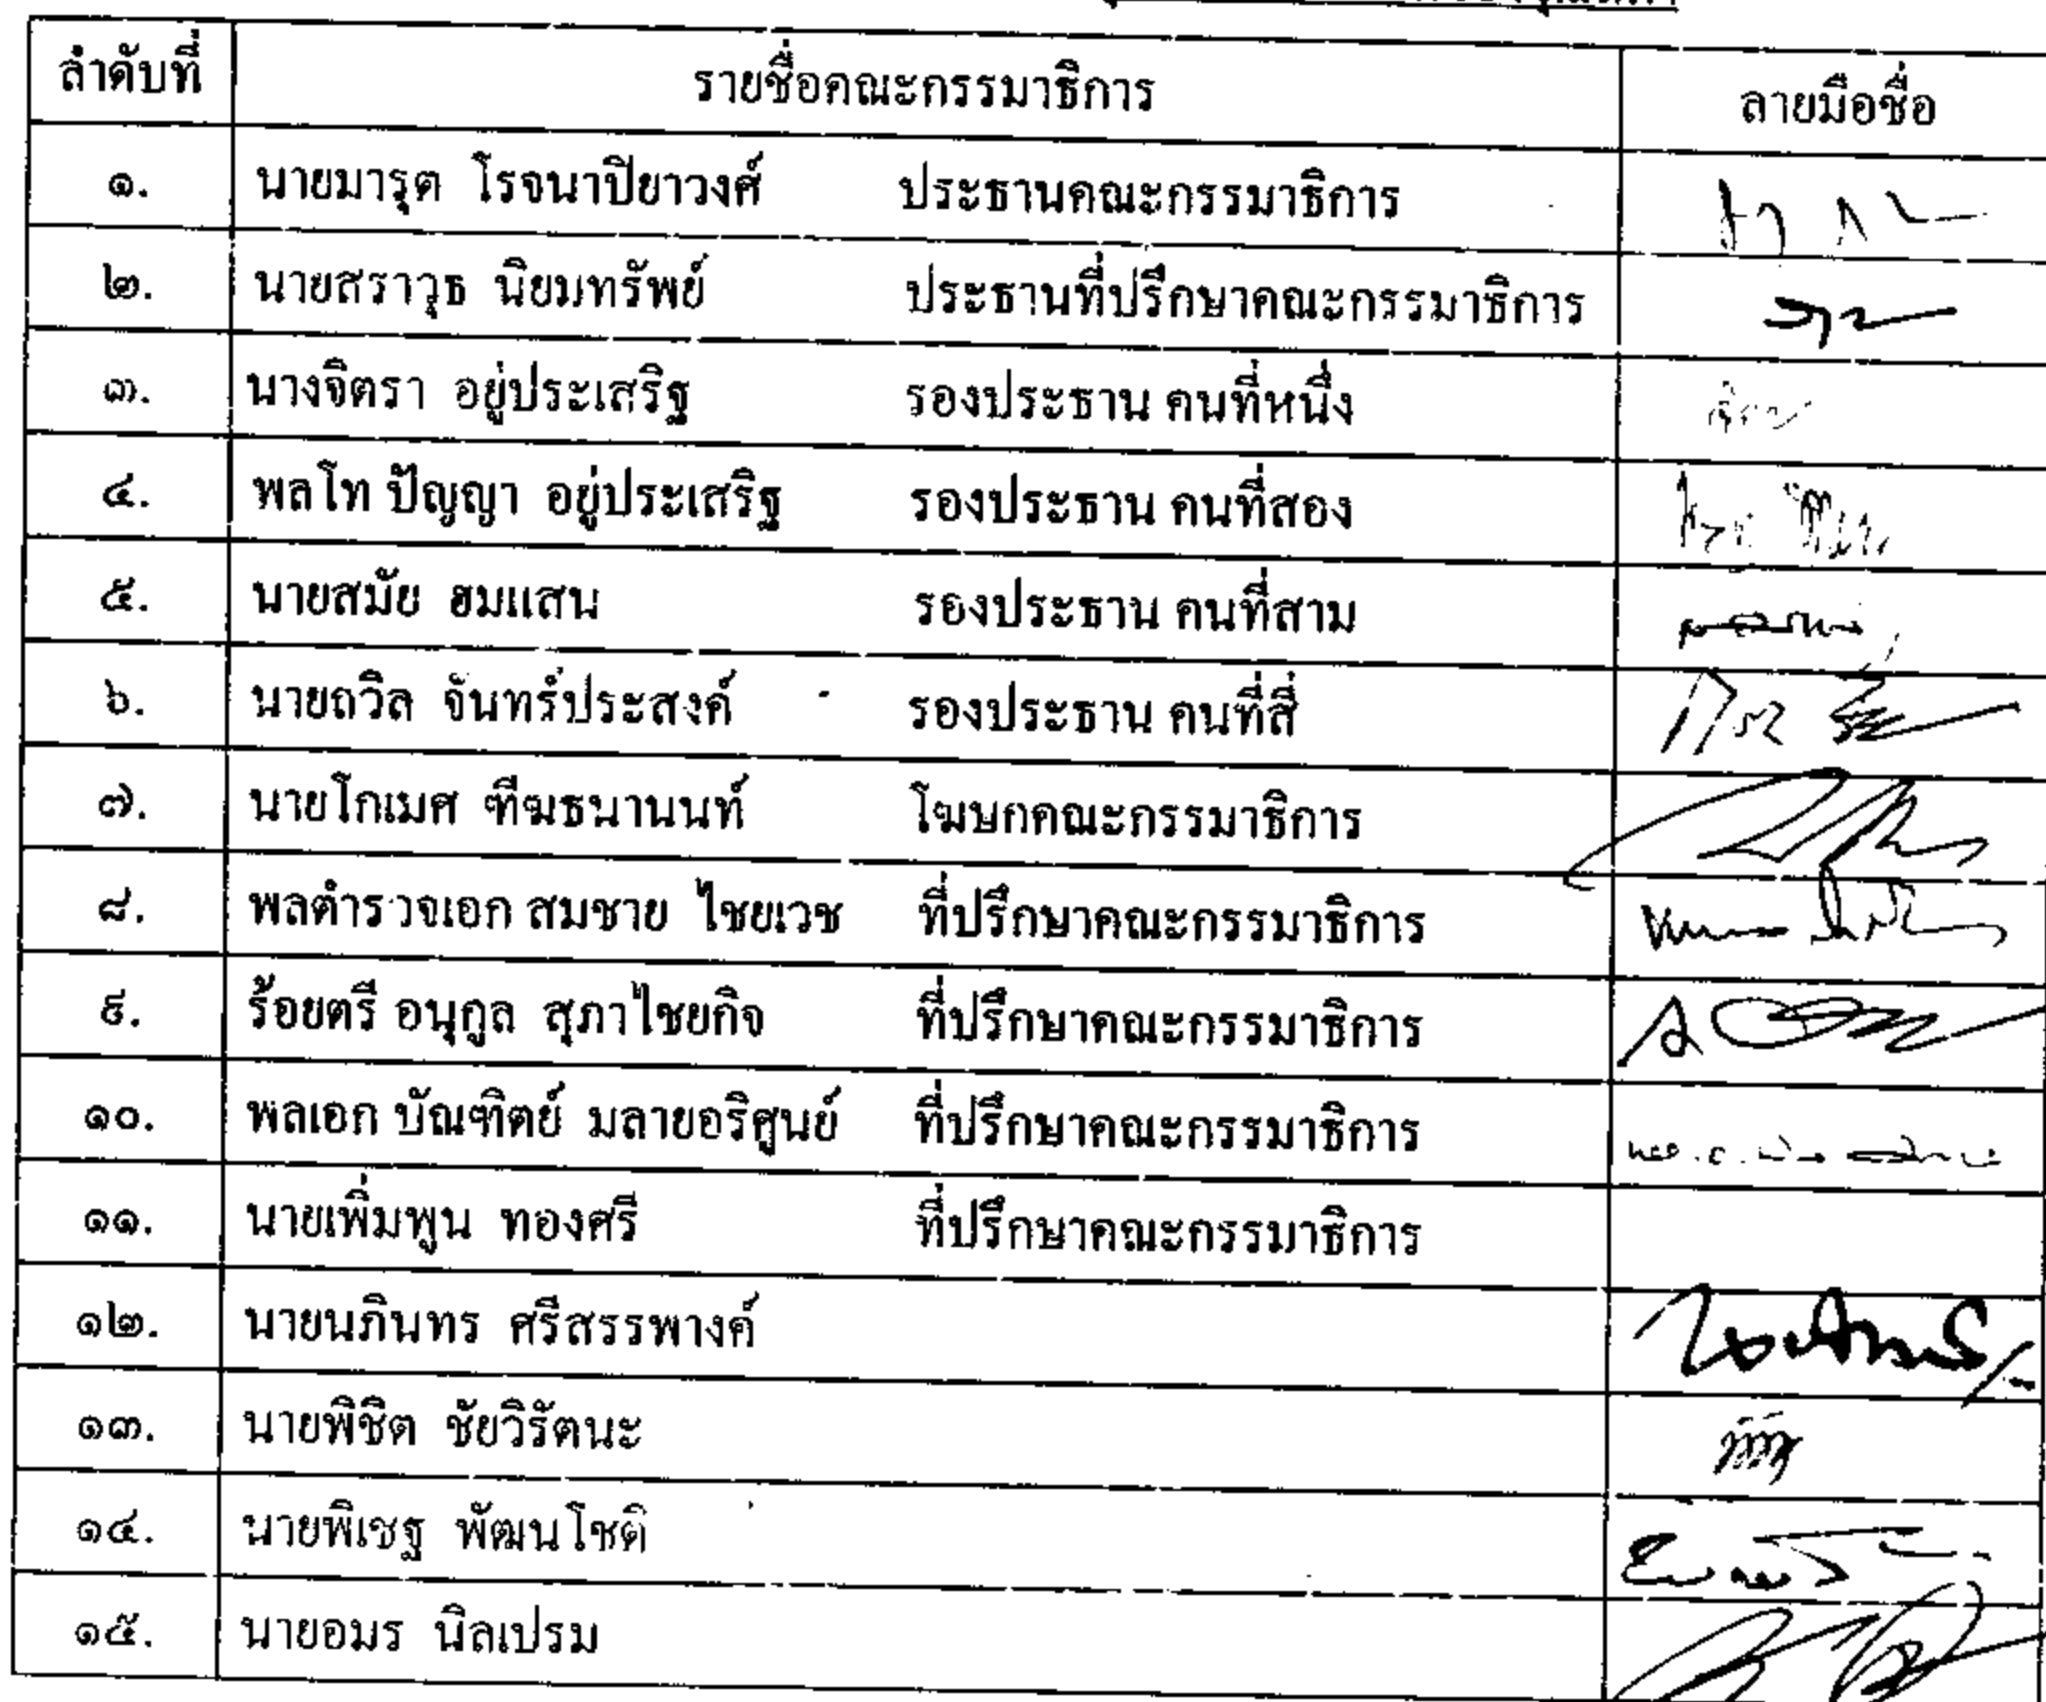 ลำดับที่ รายชื่อคณะกรรมาธิการ ลายมือชื่อ
๑. นายมารุต โรจนาปิยาวงศ์ ประธานคณะกรรมาธิการ
๒. นายสราวุธ นิยมทรัพย์ ประธานที่ปรึกษาคณะกรรมาธิการ
๓. นางจิตรา อยู่ประเสริฐ รองประธาน คนที่หนึ่ง
๔. พลโท ปัญญา อยู่ประเสริฐ รองประธาน คนที่สอง
๕. นายสมัย ฮมแสน รองประธาน คนที่สาม
๖. นายถวิล จันทร์ประสงค์ รองประธาน คนที่สี่
๗. นายโกเมศ ฑีฆธนานนท์ โฆษกคณะกรรมาธิการ
๘. พลตำรวจเอก สมชาย ไชยเวช ที่ปรึกษาคณะกรรมาธิการ
๙. ร้อยตรี อนุกูล สุภาไชยกิจ ที่ปรึกษาคณะกรรมาธิการ
๑๐. พลเอก บัณฑิตย์ มลายอริศูนย์ ที่ปรึกษาคณะกรรมาธิการ
๑๑. นายเพิ่มพูน ทองศรี ที่ปรึกษาคณะกรรมาธิการ
๑๒. นายนภินทร ศรีสรรพางค์
๑๓. นายพิชิต ชัยวิรัตนะ
๑๔. นายพิเชฐ พัฒนโชติ
๑๕. นายอมร นิลเปรม